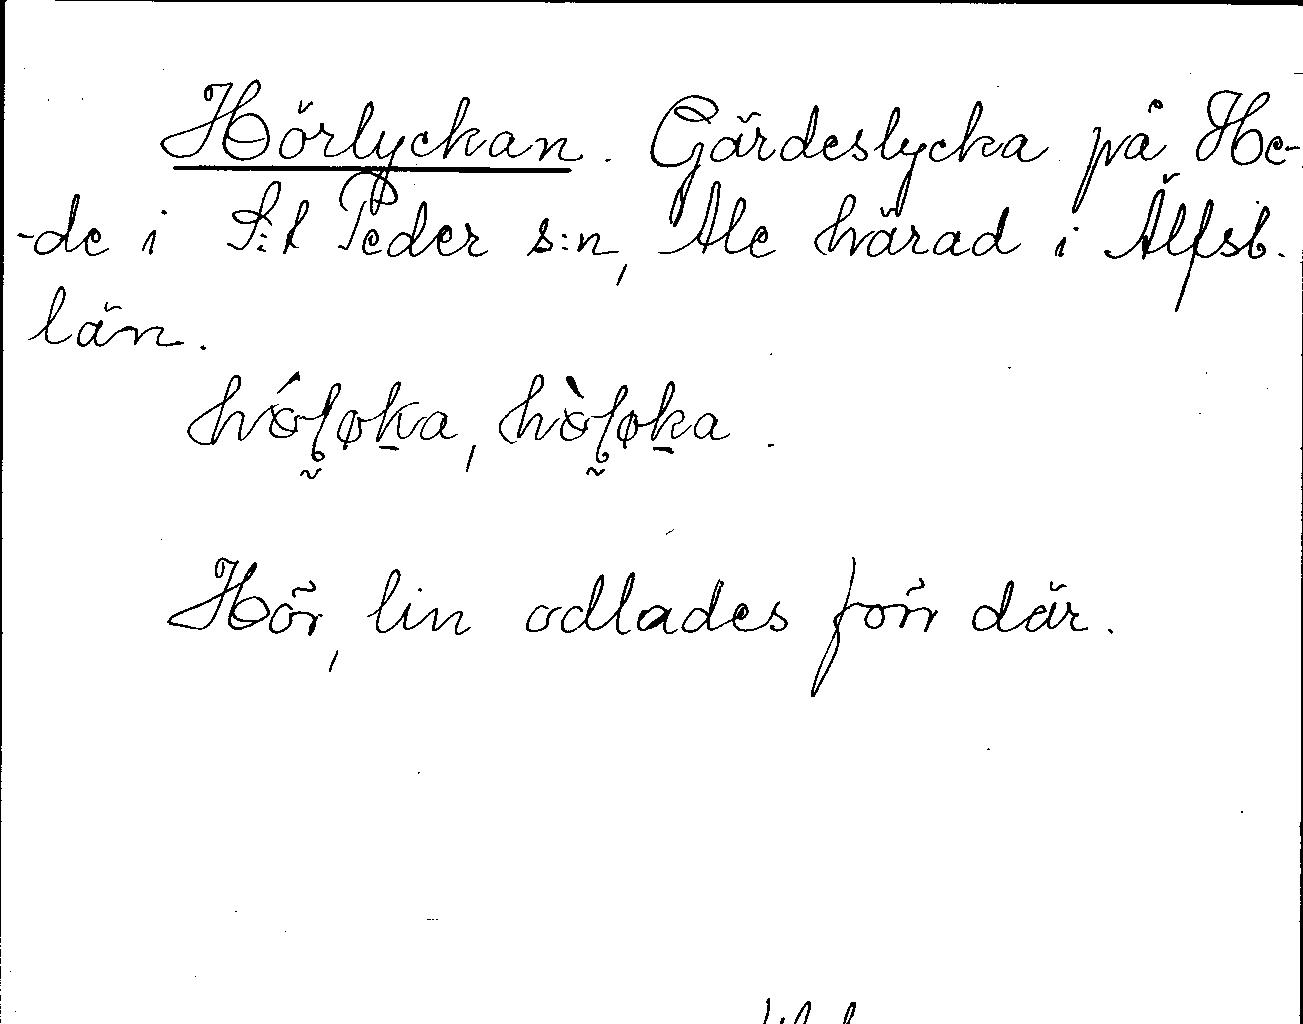 Hörlyckan. Gärdeslycka på He-
-de i S:t Peder s:n, Ale härad i Älfsb.
län.
Hör, lin odlades förr där.